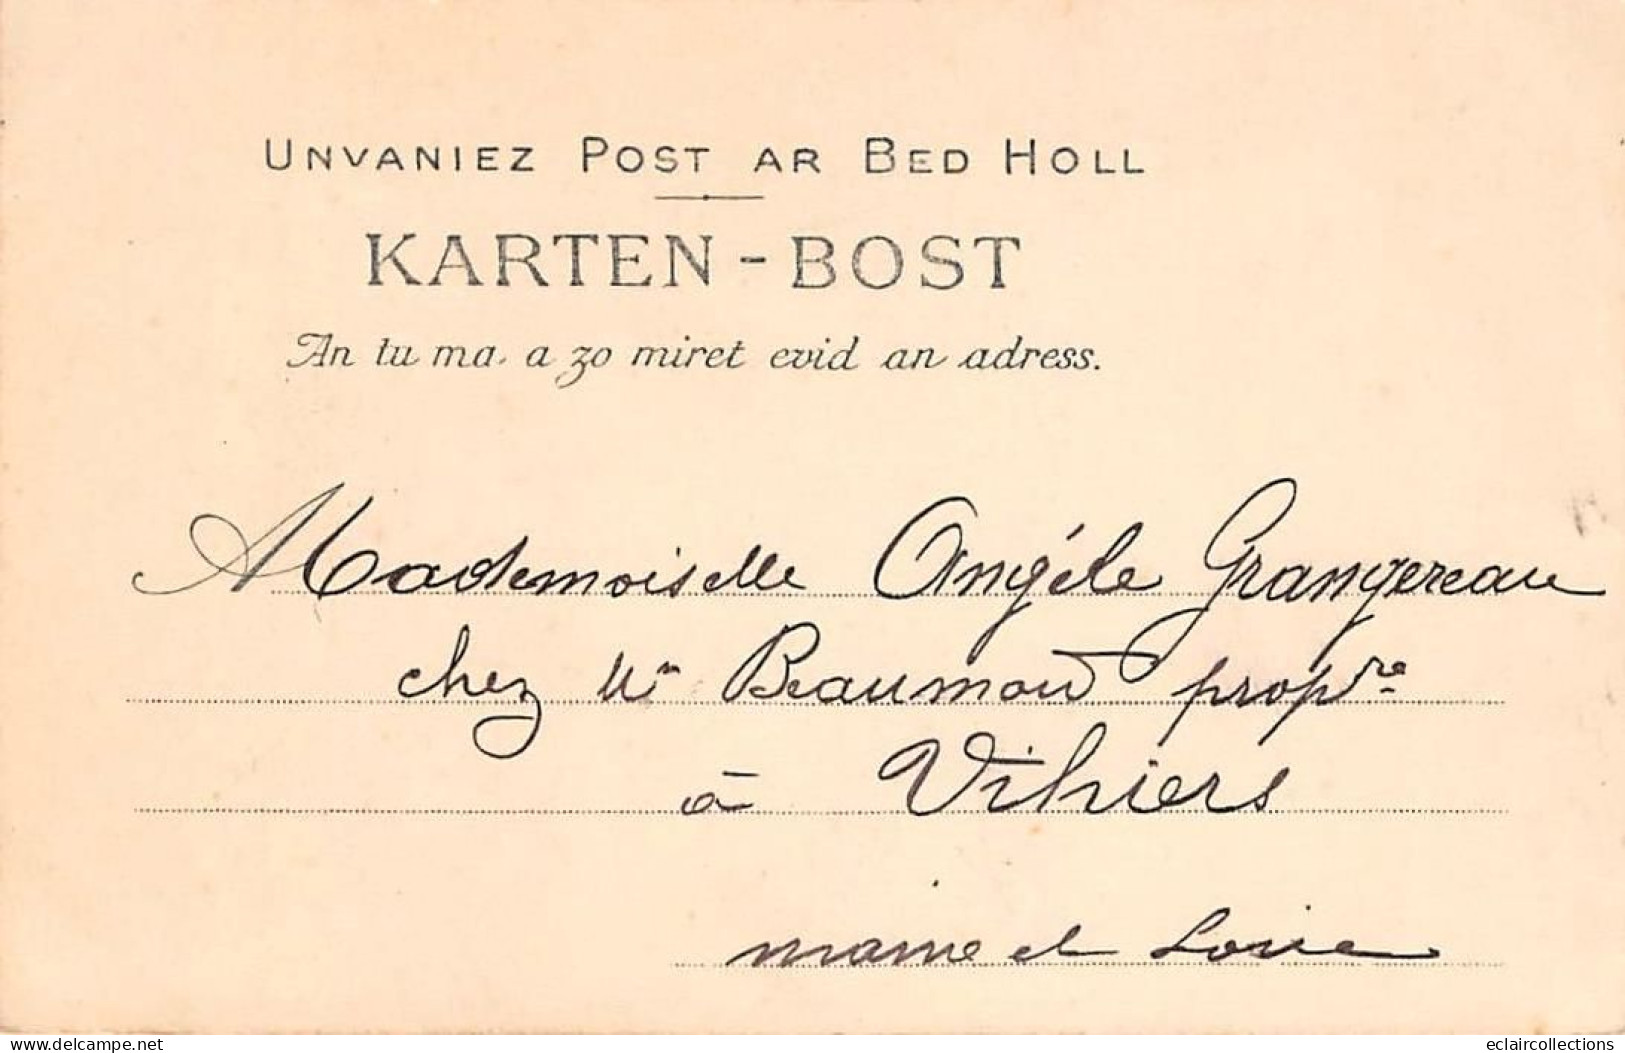 UNVANIEZ POST AR BED HOLL
KARTEN-BOST
An tu ma a zo miret evid an adress.
Mademoiselle Angéle Grangereau
chez Mr Beaumont propre
à Vihiers
maine et Loire
delcampe.net
eclaircollections